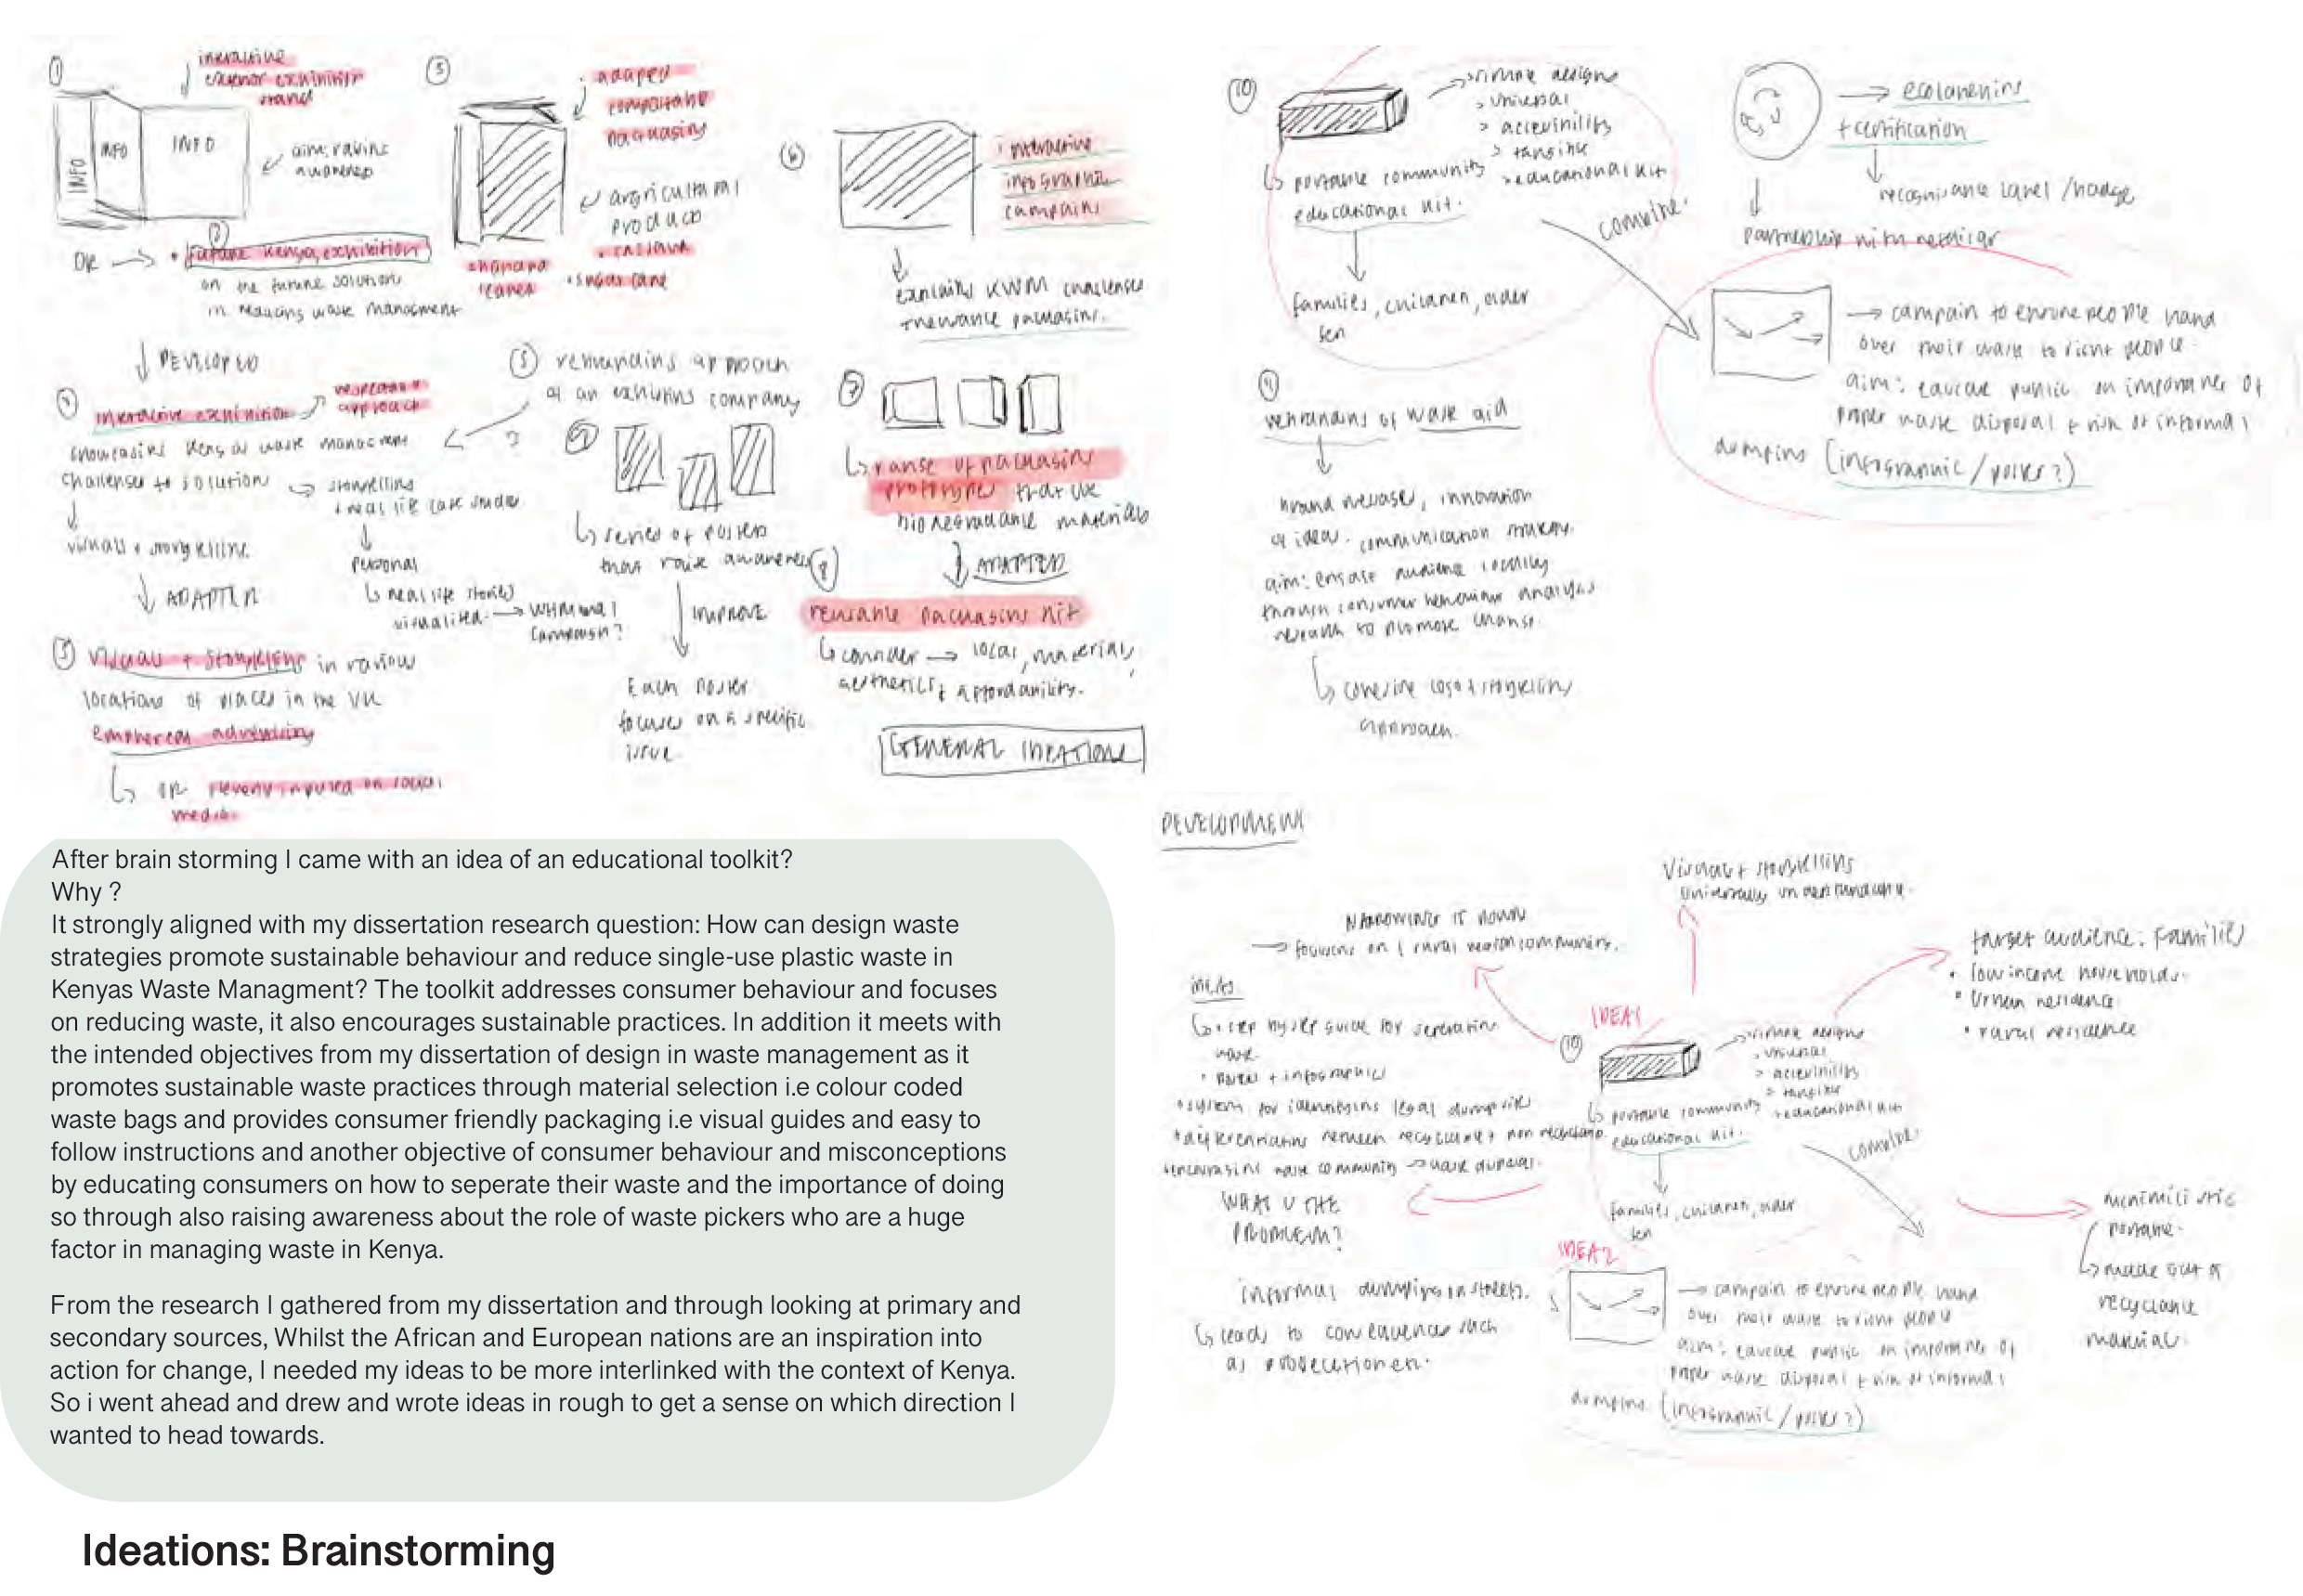 ①
interactive
exterior exhibition
stand
INFO
INFO
INFO
aim: raising
awareness
OR
②
future Kenya exhibition
on the future solutions
in reducing waste managment
DEVELOPED
interactive exhibition
approach
showcasing Kenya waste managment
challenges to solution
storytelling
+ real life case studies
visuals + storytelling
personal
real life stories
visualised
campaign?
ADAPTED
visuals + storytelling in various
locations of places in the UK
advertising
OR on social
media
③
adapted
compostable
packaging
agricultural
product
cassava
sugar cane
banana
leaves
⑤ rebranding approach
of an exhibitions company
series of posters
that raise awareness
IMPROVE
Each poster
focuses on a specific
issue.
⑥
interactive
infographic
campaign
explains KWM challenges
packaging.
⑦
range of packaging
prototypes that use
biodegradable materials
⑧
ADAPTED
reusable packaging kit
consider local, material,
aesthetics + affordability.
GENERAL IDEATIONS
⑩
simple designs
universal
accessibility
tangible
educational kit
portable community
educational kit.
families, children, older
gen
combine.
ecolabelling
+ certification
recognisable label / badge
partnership with
campain to ensure people hand
over their waste to right people.
aim: educate public on importance of
proper waste disposal + risk of informal
dumping (infographic / poster?)
⑨
rebranding of waste aid
brand message, innovation
of ideas. communication strategy.
aim: engage audience locally
through consumer behaviour analysis
research to promote change.
cohesive logo + storytelling
approach.
After brain storming I came with an idea of an educational toolkit?
Why ?
It strongly aligned with my dissertation research question: How can design waste
strategies promote sustainable behaviour and reduce single-use plastic waste in
Kenyas Waste Managment? The toolkit addresses consumer behaviour and focuses
on reducing waste, it also encourages sustainable practices. In addition it meets with
the intended objectives from my dissertation of design in waste management as it
promotes sustainable waste practices through material selection i.e colour coded
waste bags and provides consumer friendly packaging i.e visual guides and easy to
follow instructions and another objective of consumer behaviour and misconceptions
by educating consumers on how to seperate their waste and the importance of doing
so through also raising awareness about the role of waste pickers who are a huge
factor in managing waste in Kenya.
From the research I gathered from my dissertation and through looking at primary and
secondary sources, Whilst the African and European nations are an inspiration into
action for change, I needed my ideas to be more interlinked with the context of Kenya.
So i went ahead and drew and wrote ideas in rough to get a sense on which direction I
wanted to head towards.
DEVELOPMENT
Visual + storytelling
universally understandable.
NARROWING IT DOWN
focusing on 1 rural region community.
target audience: Families
• low income households.
• Urban residence
• rural residence
ideas
step by step guide for separating
waste
• poster + infographic
system for identifying legal dumpsites
differentiating between recyclable + non recyclable
IDEA1
⑩
simple designs
universal
accessibility
tangible
educational kit
portable community
educational kit.
combine.
families, children, older
gen
WHAT IS THE
PROBLEM?
informal dumping in streets.
leads to consequences such
as
IDEA2
campain to ensure people hand
over their waste to right people
aim: educate public on importance of
proper waste disposal + risk of informal
dumping (infographic / poster?)
portable.
made out of
recyclable
material.
Ideations: Brainstorming